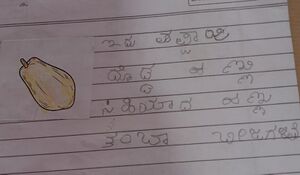 ಇದು ಪಪ್ಪಾಯಿ
ದೊಡ್ಡ ಹಣ್ಣು
ಸಿಹಿಯಾದ ಹಣ್ಣು
ತುಂಬಾ ಬೀಜಗಳಿವೆ